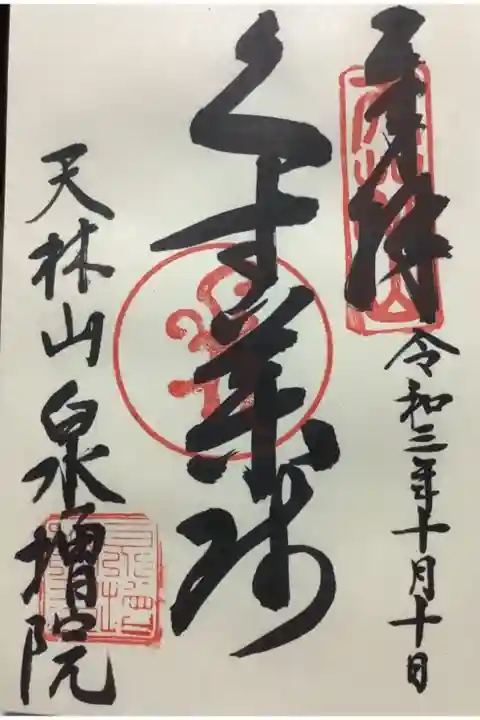 奉拝
令和三年十月十日
くす薬師
天林山泉増院